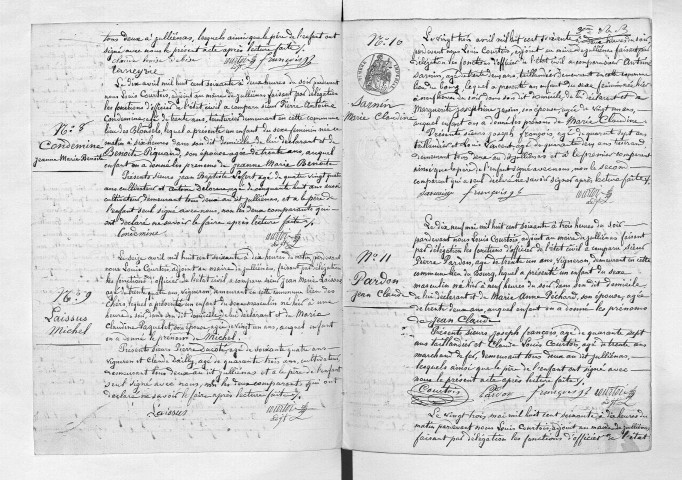 tous deux à jullienas, lesquels ainsi que le père de l'enfant ont
signé avec nous le présent acte après lecture faite %
françois
Le dix avril mil huit cent soixante à deux heures du soir, pardevant
nous Louis Courtois, adjoint au maire de jullienas, faisant par délégation
les fonctions d'officier de l'état civil a comparu sieur Pierre Antoine
N.º 8
Condemine
jeanne Marie Benoite
Condemine, agé de trente ans, tinturier demeurant en cette commune
lieu des, lequel a présenté un enfant du sexe féminin né ce
matin à heures dans son domicile de lui déclarant et de
Benoite, son épouse agée de trente ans, auquel
enfant on a donné les prénoms de jeanne Marie Benoite
Présents sieurs jean Baptiste agé de quatre vingt quatre
ans cultivateur et agé de cinquante huit ans aussi
cultivateur, demeurant tous deux au dit jullienas, et a le père de
l'enfant seul signé avec nous, non les deux comparants qui
ont déclaré ne savoir le faire après lecture faite %
Condemine
Le seize avril mil huit cent soixante à dix heures du matin, pardevant
nous Louis Courtois, adjoint au maire de jullienas, faisant par délégation
les fonctions d'officier de l'état civil a comparu sieur jean Marie Laissus
N.º 9
Laissus
Michel
agé de trente ans, vigneron, demeurant en cette commune lieu des
lequel a présenté un enfant du sexe masculin né hier à une
heure du soir, dans son dit domicile de lui déclarant et de Maria
Claudine, son épouse, agée de vingt un ans, auquel enfant
on a donné le prénom de Michel.
Présents sieurs Pierre, agé de soixante quatre ans
vigneron et Claude, agé de quarante trois ans, cultivateur,
demeurant tous deux au dit jullienas et a le père de l'enfant
seul signé avec nous, non les deux comparants, qui ont
déclaré ne savoir le faire après lecture faite %
Laissus
N.º 10
Sarnin
Marie Claudine
Le vingt trois avril mil huit cent soixante à deux heures du soir
pardevant nous Louis Courtois, adjoint au maire de jullienas faisant par
délégation les fonctions d'officier de l'état civil a comparu sieur Antoine
Sarnin, agé de trente deux ans, taillandier demeurant en cette commune
lieu du bourg, lequel a présenté un enfant du sexe féminin né hier
à heures du soir dans son dit domicile de lui déclarant et de
Marguerite, son épouse agée de vingt ans,
auquel enfant on a donné le prénom de Marie Claudine
Présents sieurs joseph françois agé de quarante sept ans
taillandier et Louis Laurent agé de quarante deux ans
demeurant tous deux au dit jullienas et a le premier comparant
ainsi que le père de l'enfant signé avec nous, non le second
comparant qui a dit ne le savoir de ce requis après lecture faite %
françois
N.º 11
Pardon
jean Claude
Le dix neuf mai mil huit cent soixante à trois heures du soir
pardevant nous Louis Courtois, adjoint au maire de jullienas, faisant
par délégation les fonctions d'officier de l'état civil a comparu sieur
Pierre Pardon, agé de trente ans, vigneron demeurant en cette
commune lieu du bourg, lequel a présenté un enfant du sexe
masculin né hier à neuf heures du soir dans son dit domicile
de lui déclarant et de Marie Anne Pichard, son épouse, agée
de trente deux ans, auquel enfant on a donné les prénoms
de jean Claude
Présents sieurs joseph françois, agé de quarante sept
ans taillandier et Claude Louis Courtois, agé de trente ans
marchand de fer, demeurant tous deux au dit jullienas,
lesquels ainsi que le père de l'enfant ont signé avec
nous le présent acte après lecture faite %
Courtois Pardon françois
Le vingt trois mai mil huit cent soixante, à dix heures du
matin pardevant nous Louis Courtois, adjoint au maire de jullienas
faisant par délégation les fonctions d'officier de l'état